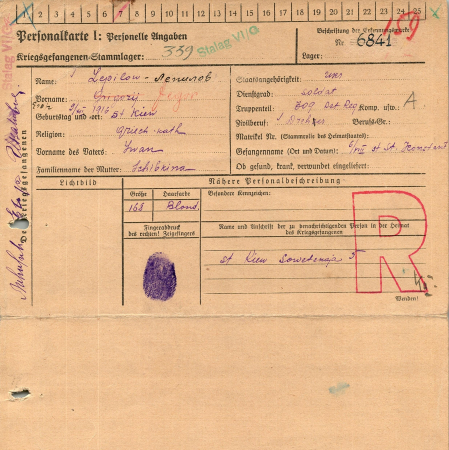 1 2 3 4 5 6 7 8 9 10 11 12 13 14 15 16 17 18 19 20 21 22 23 24 25
Personalkarte I: Personelle Angaben
Kriegsgefangenen-Stammlager: 339 Stalag VI/G
Beschriftung der Erkennungsmarke
Nr. 6841
Lager:
159
Stalag VI/G
Des Kriegsgefangenen
Name: Lepilow - Лепилов
Vorname:
Geburtstag und -ort: 1914 St Kiew
Religion: Griech-kath
Vorname des Vaters: Iwan
Familienname der Mutter: Schibkina
Staatsangehörigkeit:
Dienstgrad: soldat
Truppenteil: 709 Komp. usw.: A
Zivilberuf: Berufs-Gr.:
Matrikel Nr. (Stammrolle des Heimatstaates):
Gefangennahme (Ort und Datum):
Ob gesund, krank, verwundet eingeliefert:
Lichtbild
Nähere Personalbeschreibung
Größe
Haarfarbe
168
Blond
Besondere Kennzeichen:
Fingerabdruck
des rechten! Zeigefingers
Name und Anschrift der zu benachrichtigenden Person in der Heimat
des Kriegsgefangenen
st Kiew Sowetskaja 5
R
Wenden!